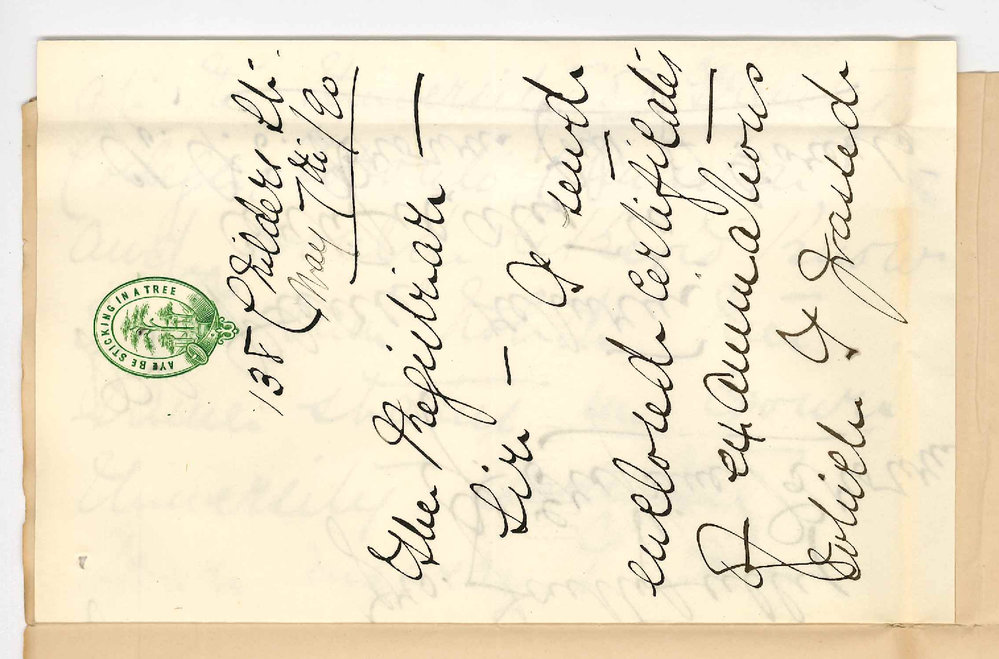 AYE BE STICKING IN A TREE
138 Childers St.
May 7th/90
The Registrar —
Sir — I send
enclosed certificates
of examinations
which I passed